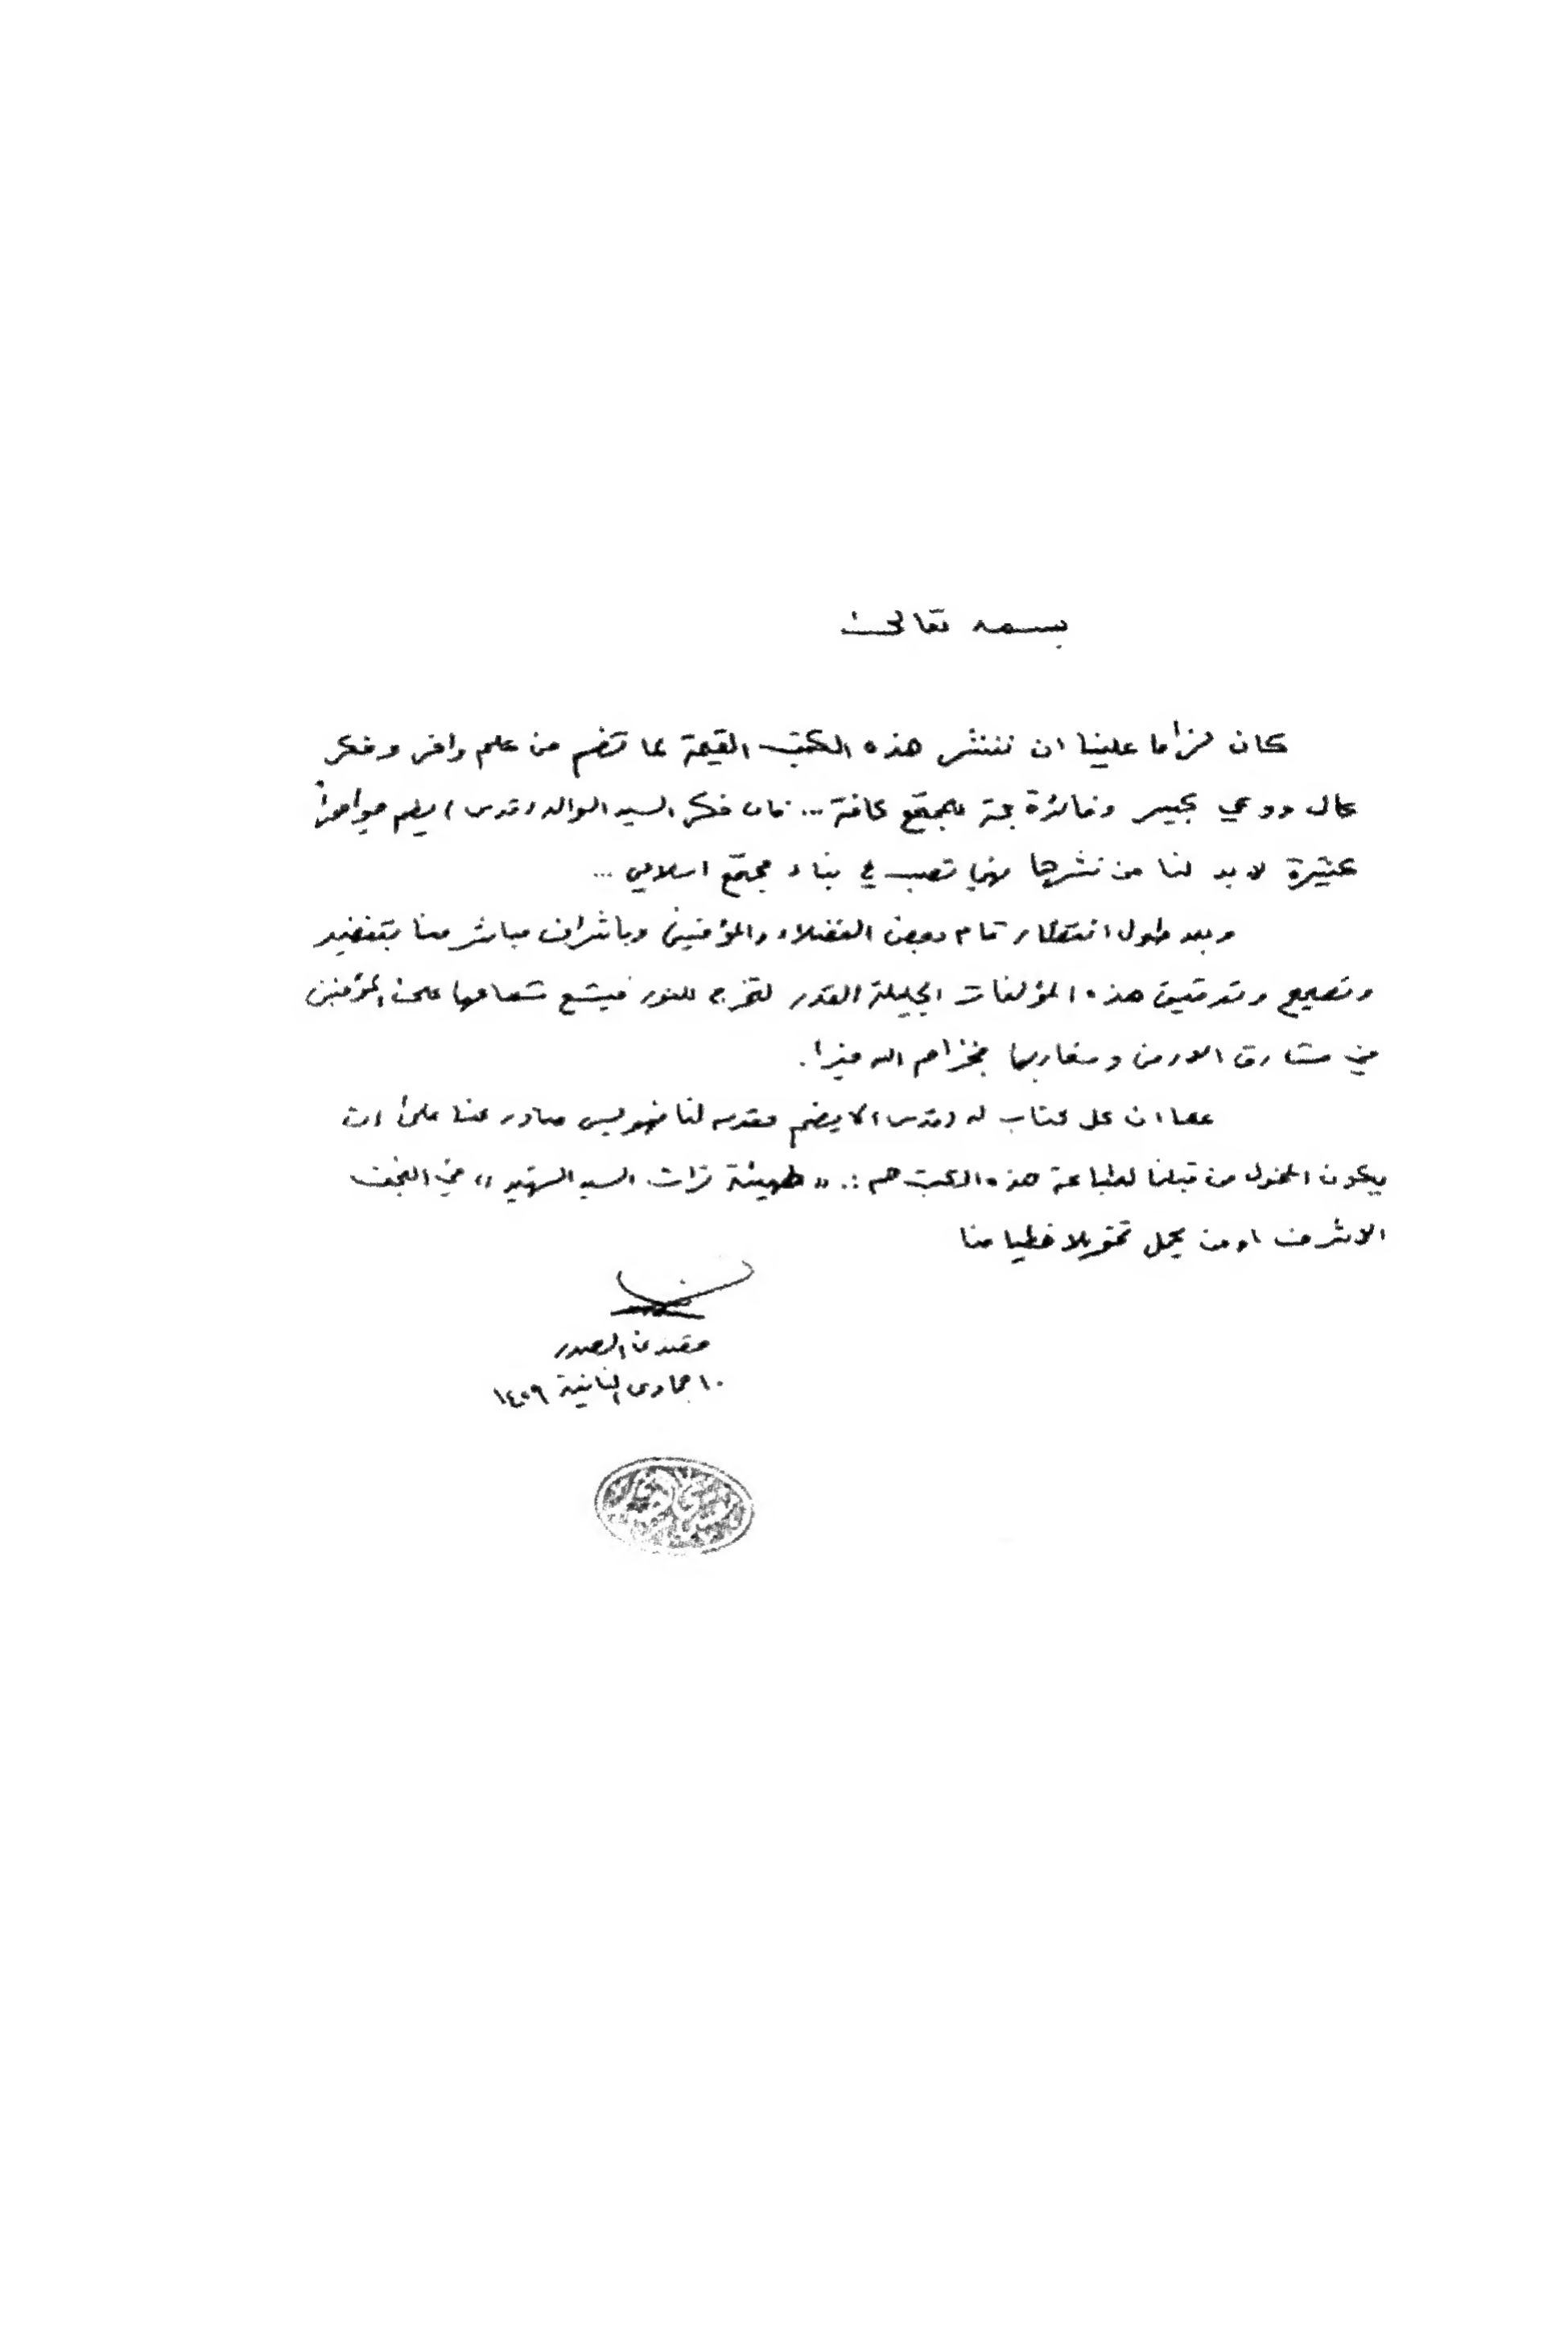 بسمه تعالى
كان لزاما علينا ان ننشر هذه الكتب القيمة لما تضم من علم وافر وفكر
عال ووعي كبير وفائدة جمة للمجتمع كافة ... فان فكر السيد الوالد (قدس) يضم جواهراً
كثيرة لا بد لنا من نشرها فهي تصب في بناء مجتمع اسلامي ...
وبعد طول انتظار قام بعض الفضلاء والمؤمنين وباشراف مباشر منا بتنضيد
وتصحيح وتدقيق هذه المؤلفات الجليلة القدر لتخرج للنور فيشع شعاعها على المؤمنين
في مشارق الارض ومغاربها فجزاهم الله خيرا.
كما ان كل كتاب له (قدس) لا يضم مقدمه لنا فهو ليس صادر عنا على ان
يكون المخول من قبلنا لطباعة هذه الكتب هم :. « هيئة تراث السيد الشهيد » في النجف
الاشرف او من يحمل تخويلا خطيا منا
مقتدى الصدر
١٠ جمادى الثانية ١٤٢٩